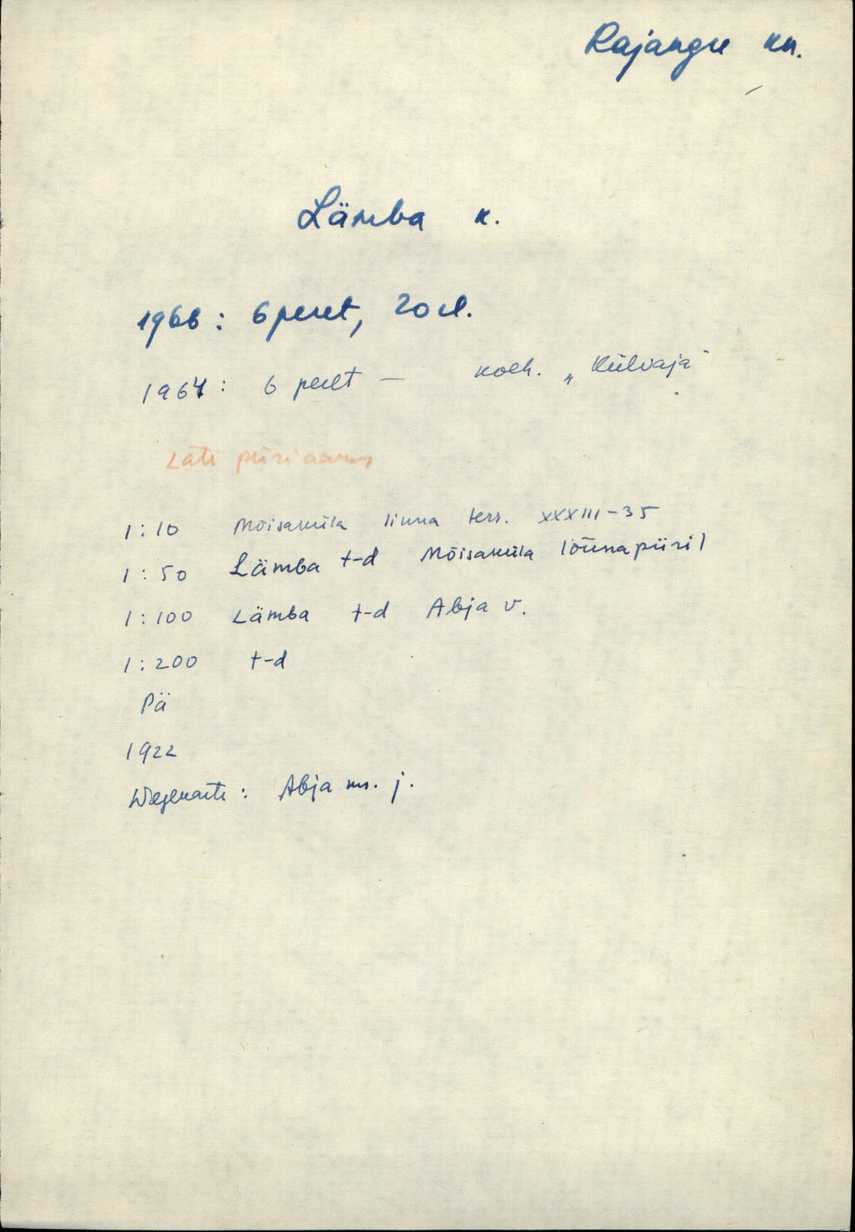 Rajangu kn.
Lämba k.
1966: 6 peret, 20 el.
1964: 6 peret — kolh. „Külvaja"
Läti piiri ääres
1:10 Mõisaküla linna terr. XXXIII-35
1:50 Lämba t-d Mõisaküla lõunapiiril
1:100 Lämba t-d Abja v.
1:200 t-d
Pä
1922
Wegekarte: Abja ms. j.